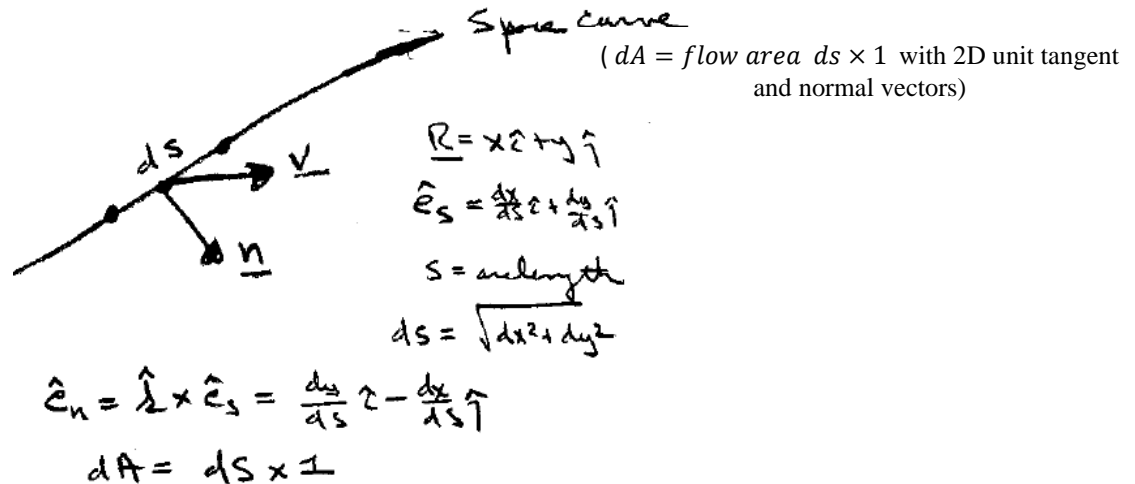 Space curve
( dA = flow area ds × 1 with 2D unit tangent
and normal vectors)
ds
V
n
R = xî + yĵ
ê_s = dx/ds î + dy/ds ĵ
s = arclength
ds = √dx² + dy²
ê_n = k̂ × ê_s = dy/ds î − dx/ds ĵ
dA = ds × 1